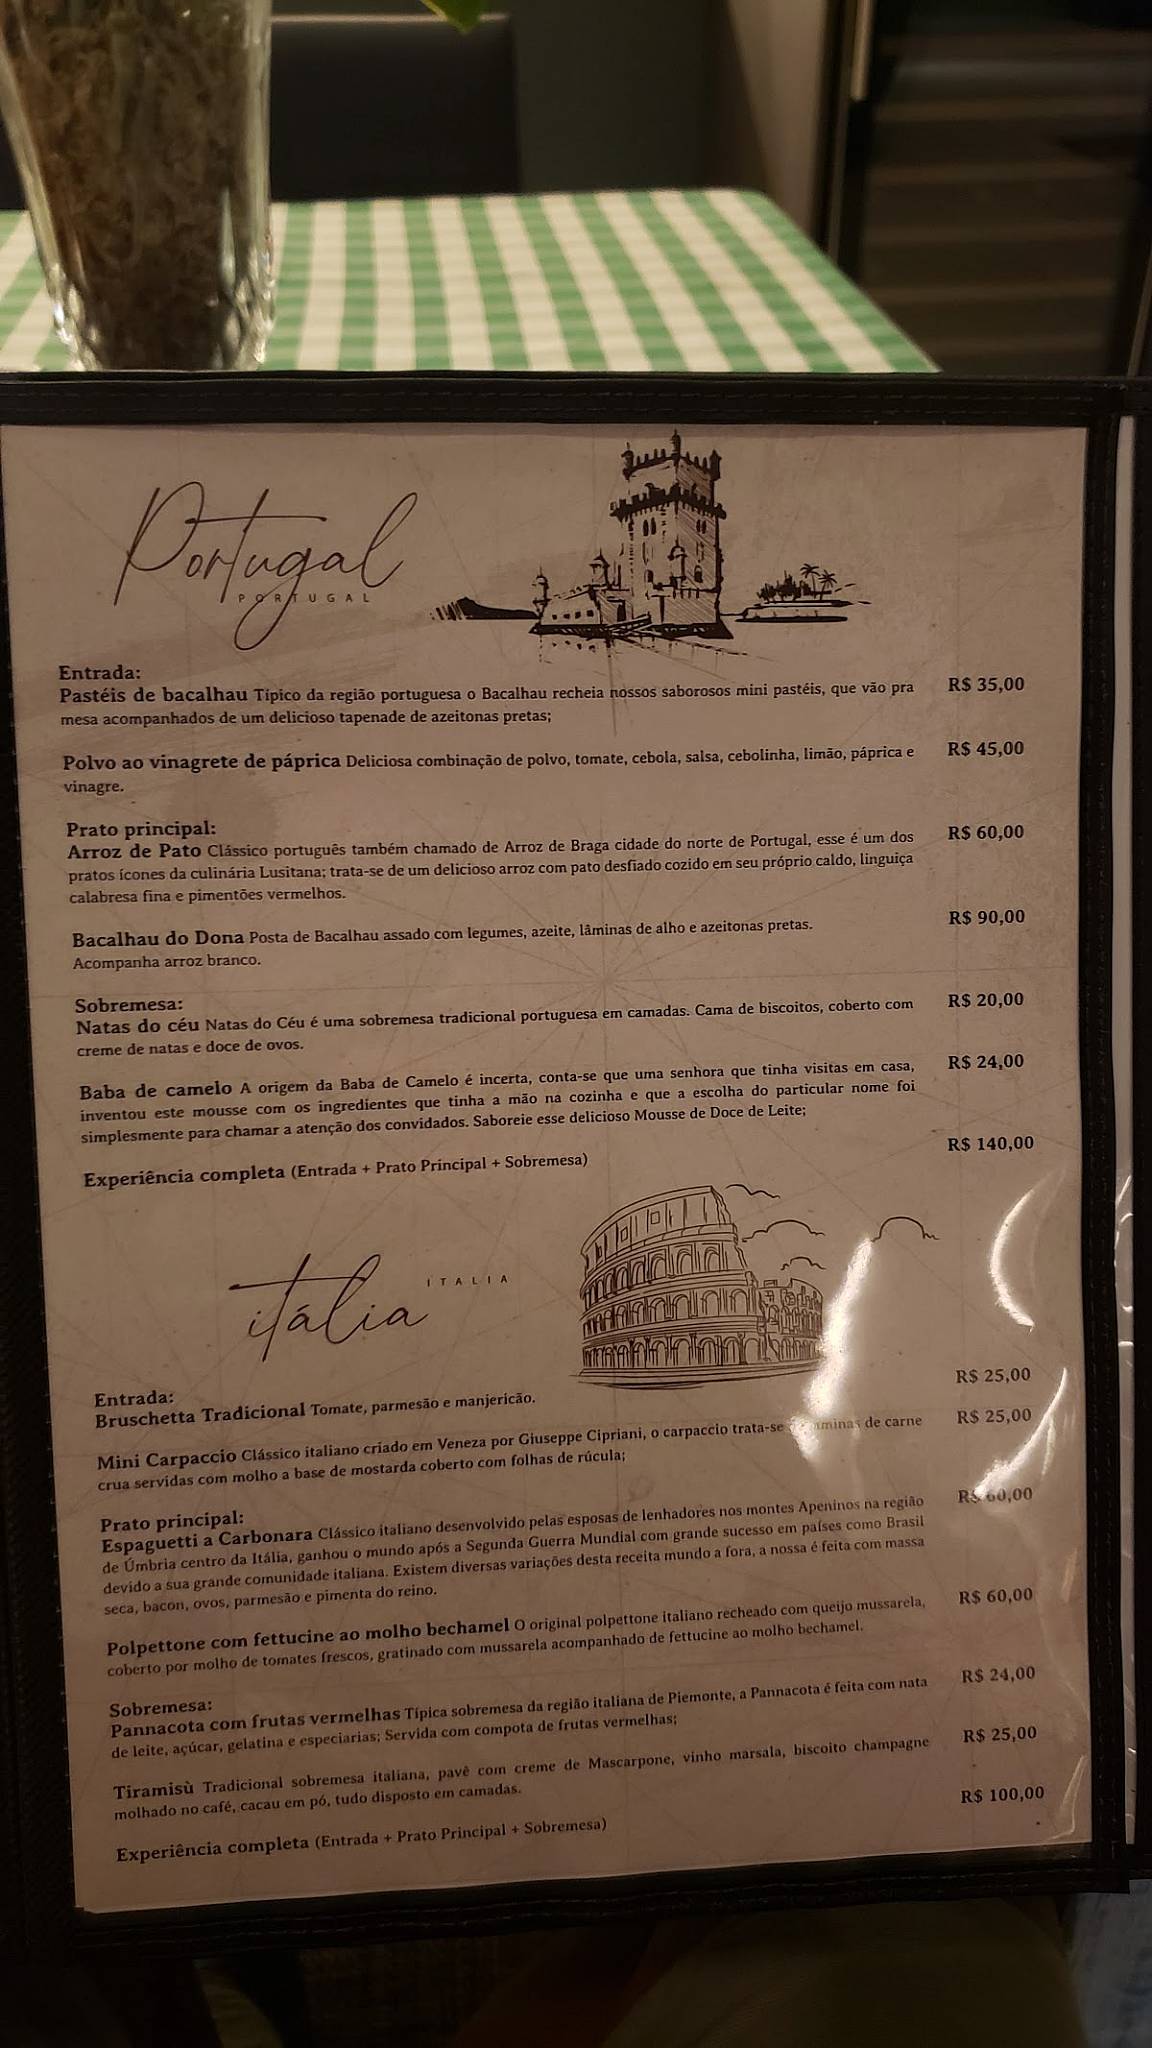 Portugal
PORTUGAL
Entrada:
Pastéis de bacalhau Típico da região portuguesa o Bacalhau recheia nossos saborosos mini pastéis, que vão pra R$ 35,00
mesa acompanhados de um delicioso tapenade de azeitonas pretas;
Polvo ao vinagrete de páprica Deliciosa combinação de polvo, tomate, cebola, salsa, cebolinha, limão, páprica e R$ 45,00
vinagre.
Prato principal:
Arroz de Pato Clássico português também chamado de Arroz de Braga cidade do norte de Portugal, esse é um dos R$ 60,00
pratos ícones da culinária Lusitana; trata-se de um delicioso arroz com pato desfiado cozido em seu próprio caldo, linguiça
calabresa fina e pimentões vermelhos.
Bacalhau do Dona Posta de Bacalhau assado com legumes, azeite, lâminas de alho e azeitonas pretas. R$ 90,00
Acompanha arroz branco.
Sobremesa:
Natas do céu Natas do Céu é uma sobremesa tradicional portuguesa em camadas. Cama de biscoitos, coberto com R$ 20,00
creme de natas e doce de ovos.
Baba de camelo A origem da Baba de Camelo é incerta, conta-se que uma senhora que tinha visitas em casa, R$ 24,00
inventou este mousse com os ingredientes que tinha a mão na cozinha e que a escolha do particular nome foi
simplesmente para chamar a atenção dos convidados. Saboreie esse delicioso Mousse de Doce de Leite;
Experiência completa (Entrada + Prato Principal + Sobremesa) R$ 140,00
itália
ITALIA
Entrada:
Bruschetta Tradicional Tomate, parmesão e manjericão. R$ 25,00
Mini Carpaccio Clássico italiano criado em Veneza por Giuseppe Cipriani, o carpaccio trata-se de carne R$ 25,00
crua servidas com molho a base de mostarda coberto com folhas de rúcula;
Prato principal:
Espaguetti a Carbonara Clássico italiano desenvolvido pelas esposas de lenhadores nos montes Apeninos na região R$ 60,00
de Úmbria centro da Itália, ganhou o mundo após a Segunda Guerra Mundial com grande sucesso em países como Brasil
devido a sua grande comunidade italiana. Existem diversas variações desta receita mundo a fora, a nossa é feita com massa
seca, bacon, ovos, parmesão e pimenta do reino.
Polpettone com fettucine ao molho bechamel O original polpettone italiano recheado com queijo mussarela, R$ 60,00
coberto por molho de tomates frescos, gratinado com mussarela acompanhado de fettucine ao molho bechamel.
Sobremesa:
Pannacota com frutas vermelhas Típica sobremesa da região italiana de Piemonte, a Pannacota é feita com nata R$ 24,00
de leite, açúcar, gelatina e especiarias; Servida com compota de frutas vermelhas;
Tiramisù Tradicional sobremesa italiana, pavê com creme de Mascarpone, vinho marsala, biscoito champagne R$ 25,00
molhado no café, cacau em pó, tudo disposto em camadas.
Experiência completa (Entrada + Prato Principal + Sobremesa) R$ 100,00